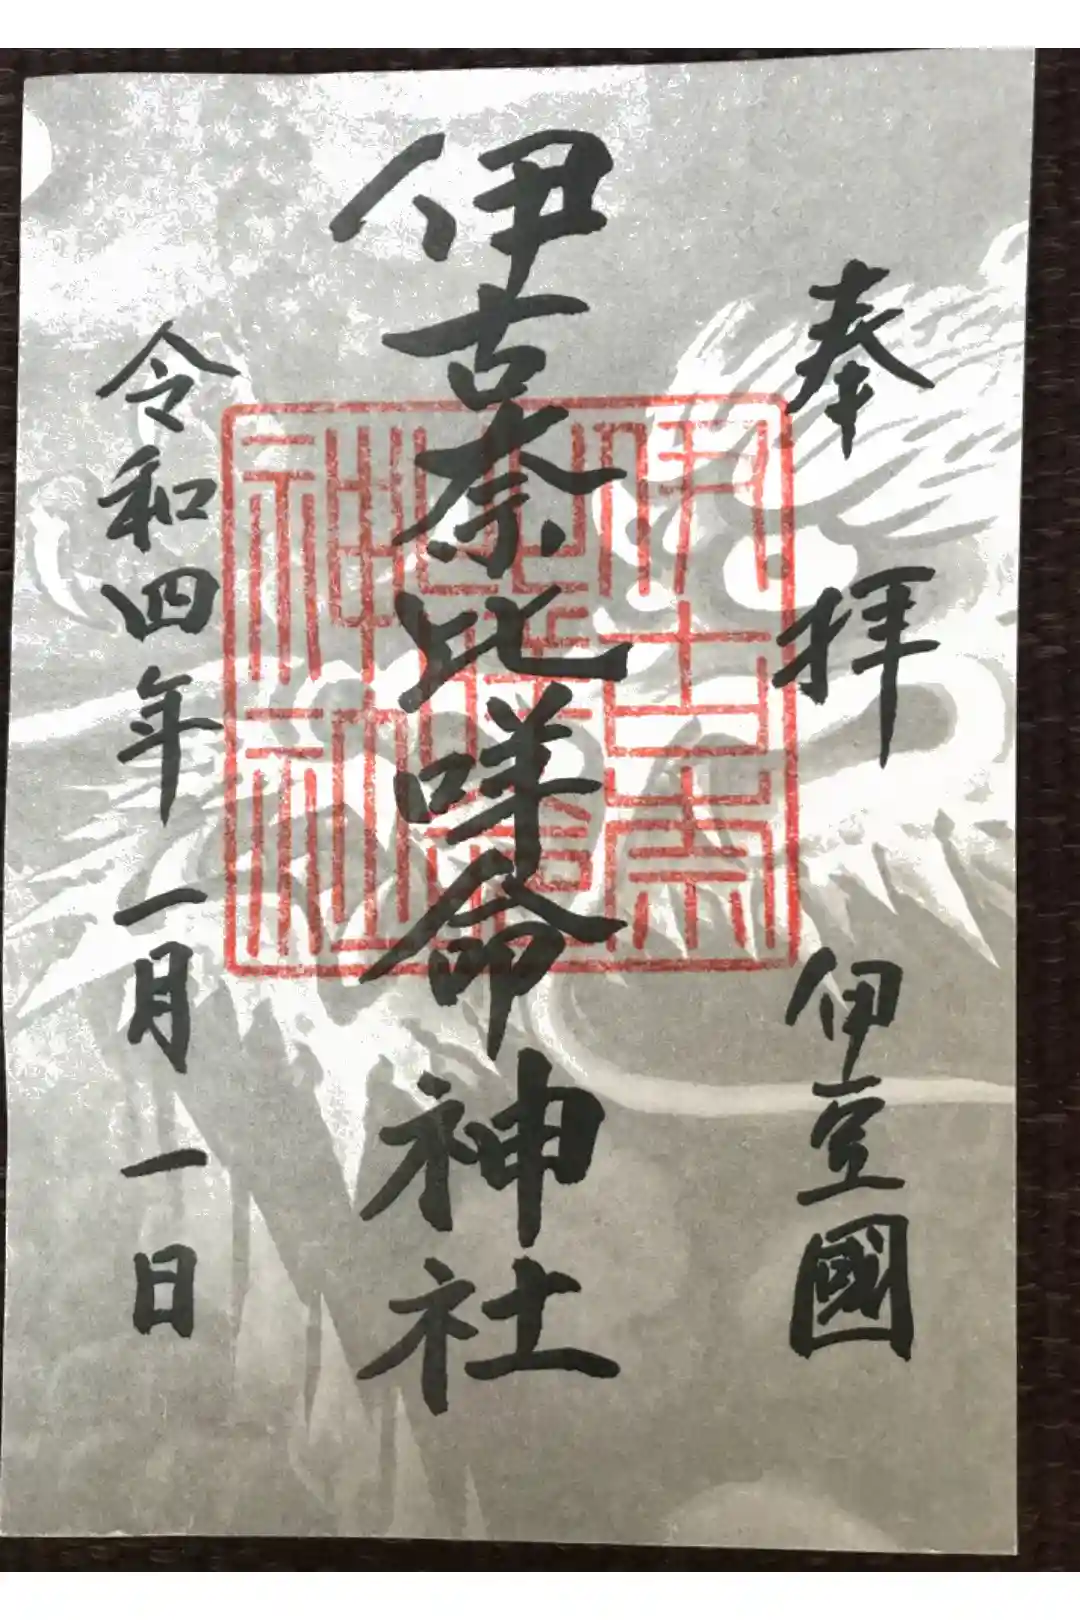 奉拝 伊豆國
伊古奈比咩命神社
伊古奈比咩命神社
令和四年一月一日